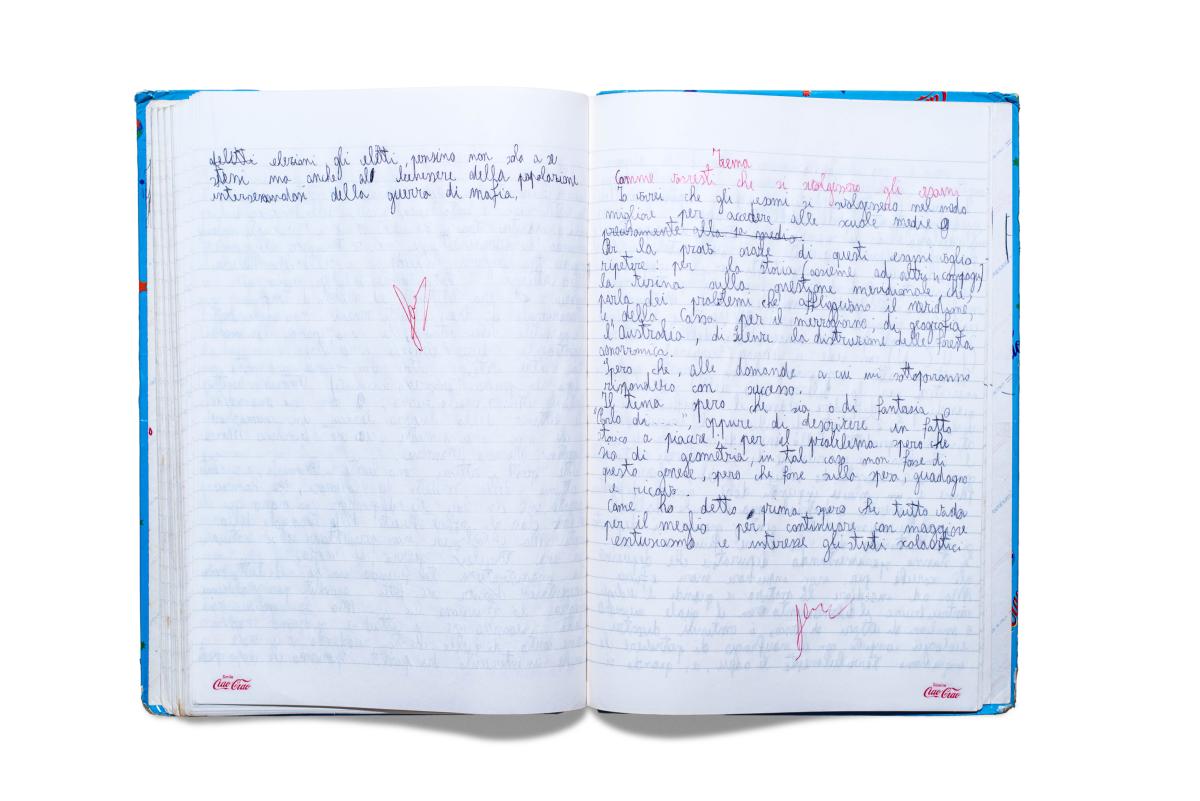 delitti elezioni gli eletti, pensino non solo a se
stessi ma anche al benessere della popolazione
interessandosi della guerra di mafia.
Smile
Ciao Ciao
Tema
Comme vorresti che si svolgessero gli esami
Io vorei che gli esami si svolgessero nel modo
migliore per accedere alle scuole medie e
precisamente alla 1a media.
Per la prova orale di questi esami voglio
ripetere: per la storia (assieme ad altri 4 compagni)
la tesina sulla questione meridionale che,
parla dei problemi che affliggevano il meridione,
e della Cassa per il mezzogiorno; di geografia
l'Australia, di scienze la distruzione delle foresta
amazzonica.
Spero che, alle domande a cui mi sottoporranno
rispondero con successo.
Il tema spero che sia o di fantasia o
"Parlo di ....", oppure di descrivere un fatto
storico a piacere; per il problema spero che
sia di geometria, in tal caso non fosse di
questo genere, spero che fosse sulla spesa, guadagno
e ricavo.
Come ho detto prima spero che tutto vada
per il meglio per continuare con maggiore
entusiasmo e interesse gli studi scolastici
Ciao Ciao